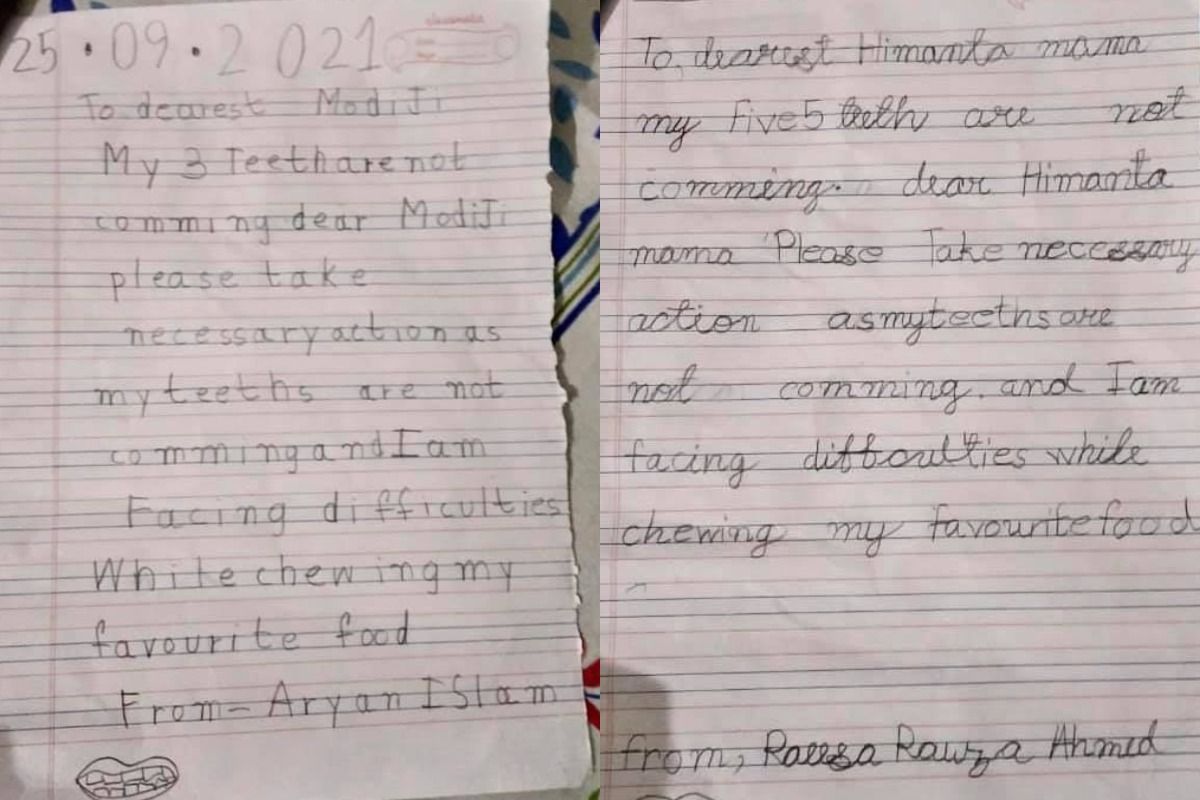 classmate
25.09.2021
To dearest ModiJi
My 3 Teeth are not
comming dear ModiJi
please take
necessary action as
my teeths are not
comming and I am
Facing difficulties
White chewing my
favourite food
From - Aryan ISlam
To, dearest Himanta mama
my Five 5 teeth are not
comming. dear Himanta
mama Please Take necessary
action as my teeths are
not comming. and I am
facing difficulties while
chewing my favourite food
from, Raeesa Rawza Ahmed